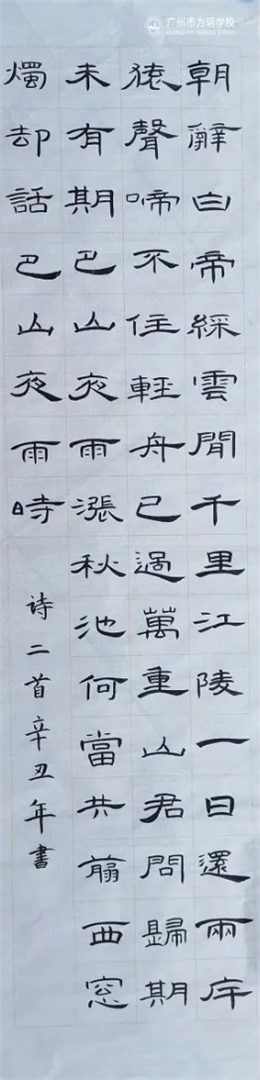 广州市为明学校
朝辭白帝綵雲間千里江陵一日還兩岸
猿聲啼不住輕舟已過萬重山君問歸期
未有期巴山夜雨漲秋池何當共翦西窓
燭却話巴山夜雨時
诗二首辛丑年書